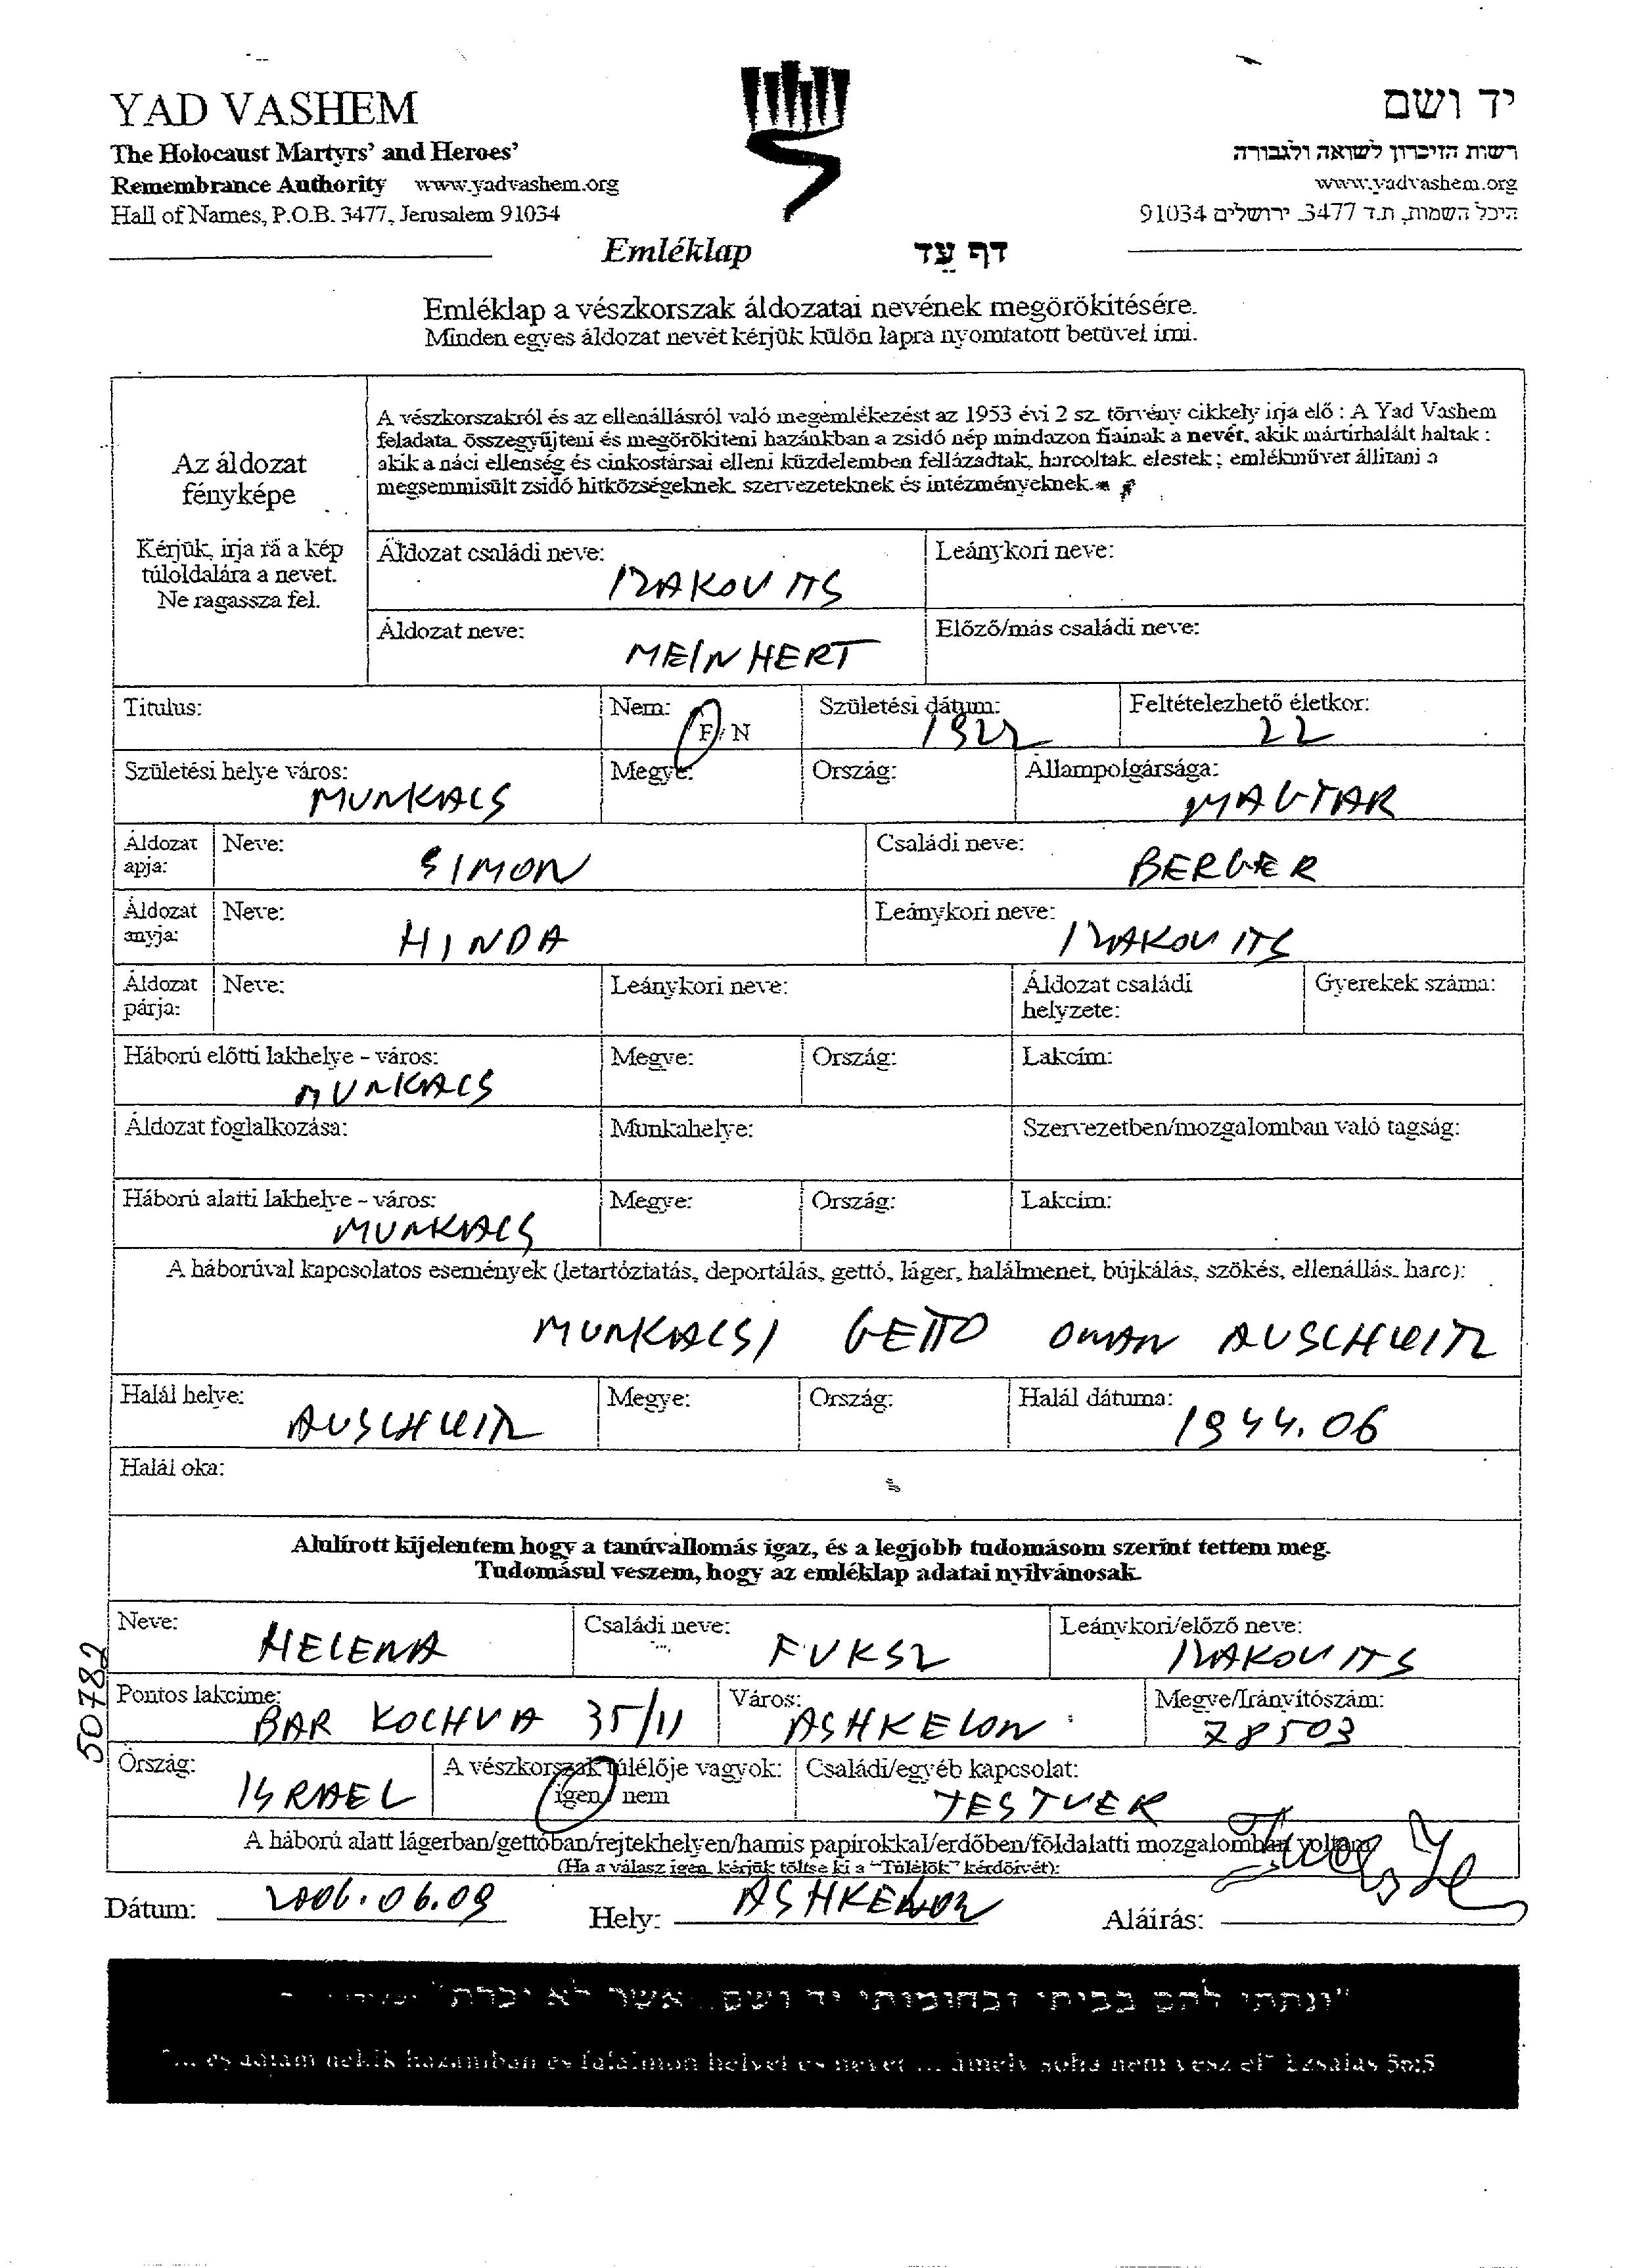 YAD VASHEM
The Holocaust Martyrs' and Heroes'
Remembrance Authority www.yadvashem.org
Hall of Names, P.O.B. 3477, Jerusalem 91034
יד ושם
רשות הזיכרון לשואה ולגבורה
www.yadvashem.org
היכל השמות, ת.ד 3477 ירושלים 91034
Emléklap דף עֵד
Emléklap a vészkorszak áldozatai nevének megörökitésére.
Minden egyes áldozat nevét kérjük külön lapra nyomtatott betüvel irni.
Az áldozat
fényképe
Kérjük, irja rá a kép
túloldalára a nevet.
Ne ragassza fel.
A vészkorszakról és az ellenállásról való megemlékezést az 1953 évi 2 sz. törvény cikkely irja elő : A Yad Vashem
feladata összegyüjteni és megörökiteni hazánkban a zsidó nép mindazon fiainak a nevét, akik mártirhalált haltak :
akik a náci ellenség és cinkostársai elleni küzdelemben fellázadtak, harcoltak, elestek ; emlékmüvet állitani a
megsemmisült zsidó hitközségeknek, szervezeteknek és intézményeknek.
Áldozat családi neve: IZAKOVITS
Leánykori neve:
Áldozat neve: MEINHERT
Előző/más családi neve:
Titulus:
Nem: F / N
Születési dátum: 1922
Feltételezhető életkor: 22
Születési helye város: MUNKACS
Megye:
Ország:
Állampolgársága: MAGYAR
Áldozat apja:
Neve: SIMON
Családi neve: BERGER
Áldozat anyja:
Neve: HINDA
Leánykori neve: IZAKOVITS
Áldozat párja:
Neve:
Leánykori neve:
Áldozat családi helyzete:
Gyerekek száma:
Háború előtti lakhelye - város: MUNKACS
Megye:
Ország:
Lakcím:
Áldozat foglalkozása:
Munkahelye:
Szervezetben/mozgalomban való tagság:
Háború alatti lakhelye - város: MUNKACS
Megye:
Ország:
Lakcím:
A háborúval kapcsolatos események (letartóztatás, deportálás, gettó, láger, halálmenet, bújkálás, szökés, ellenállás, harc):
MUNKACSI GETTO ONNAN AUSCHWITZ
Halál helye: AUSCHWITZ
Megye:
Ország:
Halál dátuma: 1944.06
Halál oka:
Alulírott kijelentem hogy a tanúvallomás igaz, és a legjobb tudomásom szerint tettem meg.
Tudomásul veszem, hogy az emléklap adatai nyilvánosak.
50782
Neve: HELENA
Családi neve: FUKSZ
Leánykori/előző neve: IZAKOVITS
Pontos lakcime: BAR KOCHVA 35/11
Város: ASHKELON
Megye/Irányítószám: 78503
Ország: ISRAEL
A vészkorszak túlélője vagyok: igen / nem
Családi/egyéb kapcsolat: TESTVER
A háború alatt lágerban/gettóban/rejtekhelyen/hamis papirokkal/erdőben/földalatti mozgalomban voltam
(Ha a válasz igen, kérjük töltse ki a "Túlélők" kérdőivét):
Dátum: 2006.06.09
Hely: ASHKELON
Aláirás:
"ונתתי להם בביתי ובחומותי יד ושם... אשר לא יכרת"
"... és adtam nekik házamban és falaimon helyet és nevet ... amely soha nem vész el" Ezsaiás 56:5